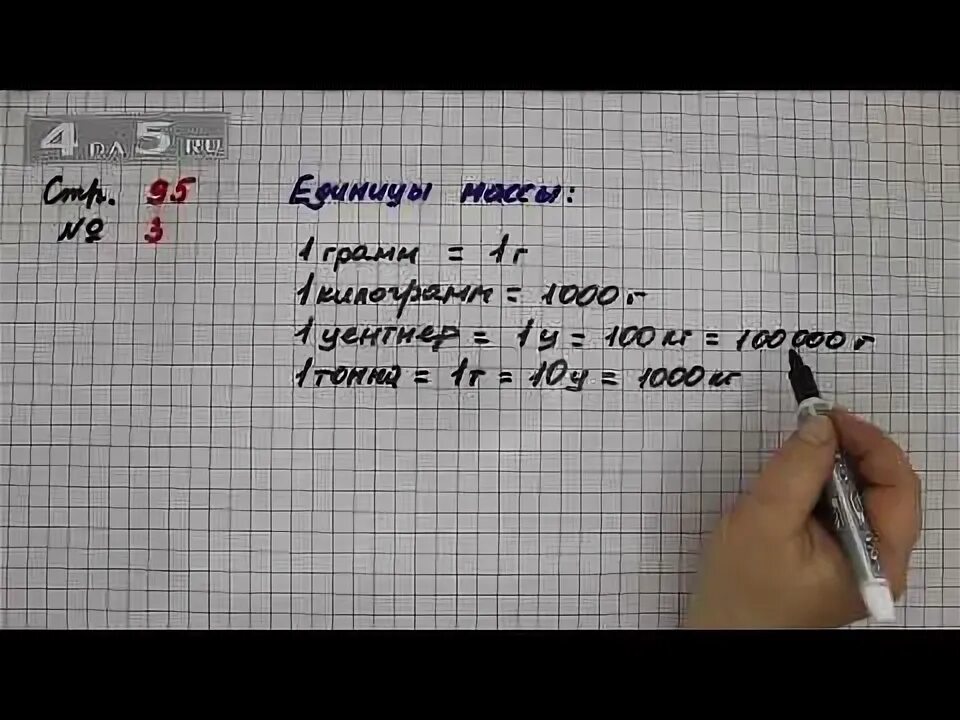 4 НА 5 RU
Стр. 95
№ 3
Единицы массы:
1 грамм = 1 г
1 килограмм = 1000 г
1 центнер = 1 ц = 100 кг = 100 000 г
1 тонна = 1 т = 10 ц = 1000 кг